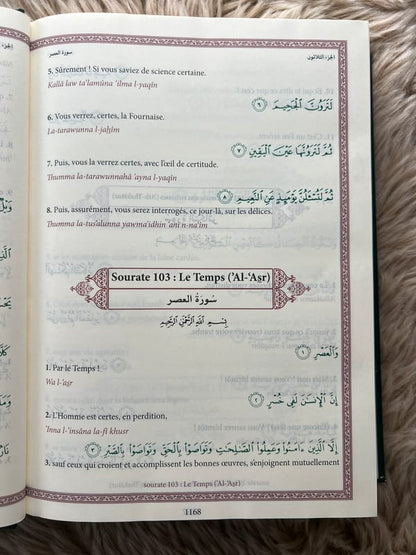 سورة العصر
الجزء الثلاثون
5. Sûrement ! Si vous saviez de science certaine.
Kallâ law ta'lamûna 'ilma l-yaqîn
لَتَرَوُنَّ ٱلْجَحِيمَ ٦
6. Vous verrez, certes, la Fournaise.
La-tarawunna l-jaḥîm
ثُمَّ لَتَرَوُنَّهَا عَيْنَ ٱلْيَقِينِ ٧
7. Puis, vous la verrez certes, avec l'œil de certitude.
Thumma la-tarawunnahâ 'ayna l-yaqîn
ثُمَّ لَتُسْـَٔلُنَّ يَوْمَئِذٍ عَنِ ٱلنَّعِيمِ ٨
8. Puis, assurément, vous serez interrogés, ce jour-là, sur les délices.
Thumma la-tus'alunna yawma'idhin 'ani n-na'îm
Sourate 103 : Le Temps ('Al-'Aṣr)
سُورَةُ العصر
بِسْمِ اللَّهِ الرَّحْمَٰنِ الرَّحِيمِ
وَٱلْعَصْرِ ١
1. Par le Temps !
Wa l-'aṣr
إِنَّ ٱلْإِنسَٰنَ لَفِى خُسْرٍ ٢
2. L'Homme est certes, en perdition,
'Inna l-'insâna la-fî khusr
إِلَّا ٱلَّذِينَ ءَامَنُوا۟ وَعَمِلُوا۟ ٱلصَّٰلِحَٰتِ وَتَوَاصَوْا۟ بِٱلْحَقِّ وَتَوَاصَوْا۟ بِٱلصَّبْرِ ٣
3. sauf ceux qui croient et accomplissent les bonnes œuvres, s'enjoignent mutuellement
sourate 103 : Le Temps ('Al-'Aṣr)
1168